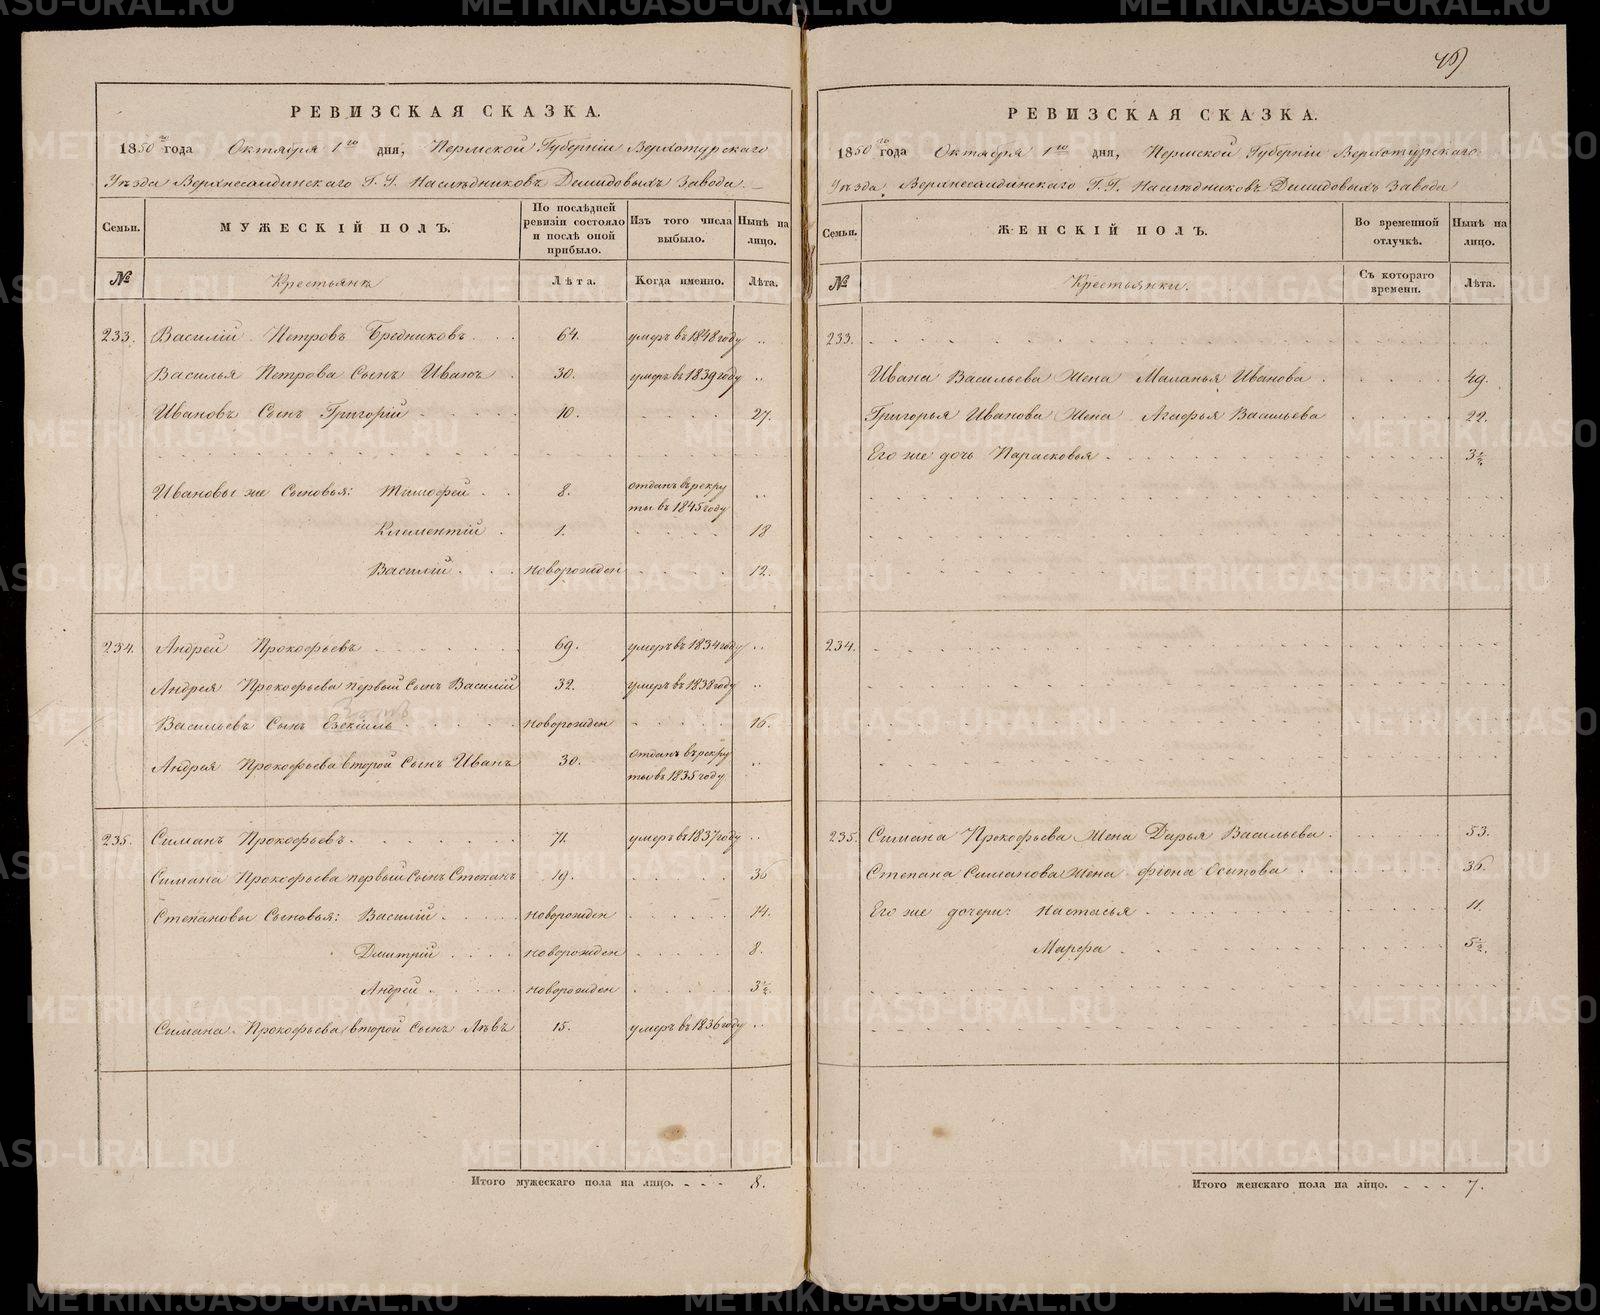 РЕВИЗСКАЯ СКАЗКА.
1850го года Октября 1го дня, Пермской Губерніи Верхотурскаго
Уѣзда Верхнесалдинскаго Г. Г. Наслѣдниковъ Демидовыхъ Завода.
Семьи.
МУЖЕСКІЙ ПОЛЪ.
По послѣдней ревизіи состояло и послѣ оной прибыло.
Изъ того числа выбыло.
Нынѣ на лицо.
№
Крестьянъ
Лѣта.
Когда именно.
Лѣта.
233. Василій Петровъ Бредниковъ 64. умеръ въ 1848 году
Василья Петрова Сынъ Иванъ 30. умеръ въ 1839 году
Ивановъ Сынъ Григорій 10. 27.
Ивановы же Сыновья: Тимофей 8. отданъ въ рекру
ты въ 1845 году
Климентій 1. 18
Василій новорожден 12.
234. Андрей Прокофьевъ 69. умеръ въ 1834 году
Андрея Прокофьева первый Сынъ Василій 32. умеръ въ 1838 году
Васильевъ Сынъ Езекіиль новорожден 16.
Андрея Прокофьева второй Сынъ Иванъ 30. отданъ въ рекру
ты въ 1835 году
235. Симанъ Прокофьевъ 71. умеръ въ 1837 году
Симана Прокофьева первый Сынъ Степанъ 19. 36
Степановы Сыновья: Василій новорожден 14.
Дмитрій новорожден 8.
Андрей новорожден 3½
Симана Прокофьева второй Сынъ Лѣвъ 15. умеръ въ 1836 году
Итого мужескаго пола на лицо. 8.
РЕВИЗСКАЯ СКАЗКА.
1850го года Октября 1го дня, Пермской Губерніи Верхотурскаго
Уѣзда Верхнесалдинскаго Г. Г. Наслѣдниковъ Демидовыхъ Завода
Семьи.
ЖЕНСКІЙ ПОЛЪ.
Во временной отлучкѣ.
Нынѣ на лицо.
№
Крестьянки.
Съ котораго времени.
Лѣта.
233.
Ивана Васильева Жена Маланья Иванова 49.
Григорья Иванова Жена Агафья Васильева 22.
Его же дочь Парасковья 3½
234.
235. Симана Прокофьева Жена Дарья Васильева 53.
Степана Симанова Жена Фіона Осипова 36.
Его же дочери: Настасья 11.
Марфа 5½
Итого женскаго пола на лицо. 7.
METRIKI.GASO-URAL.RU